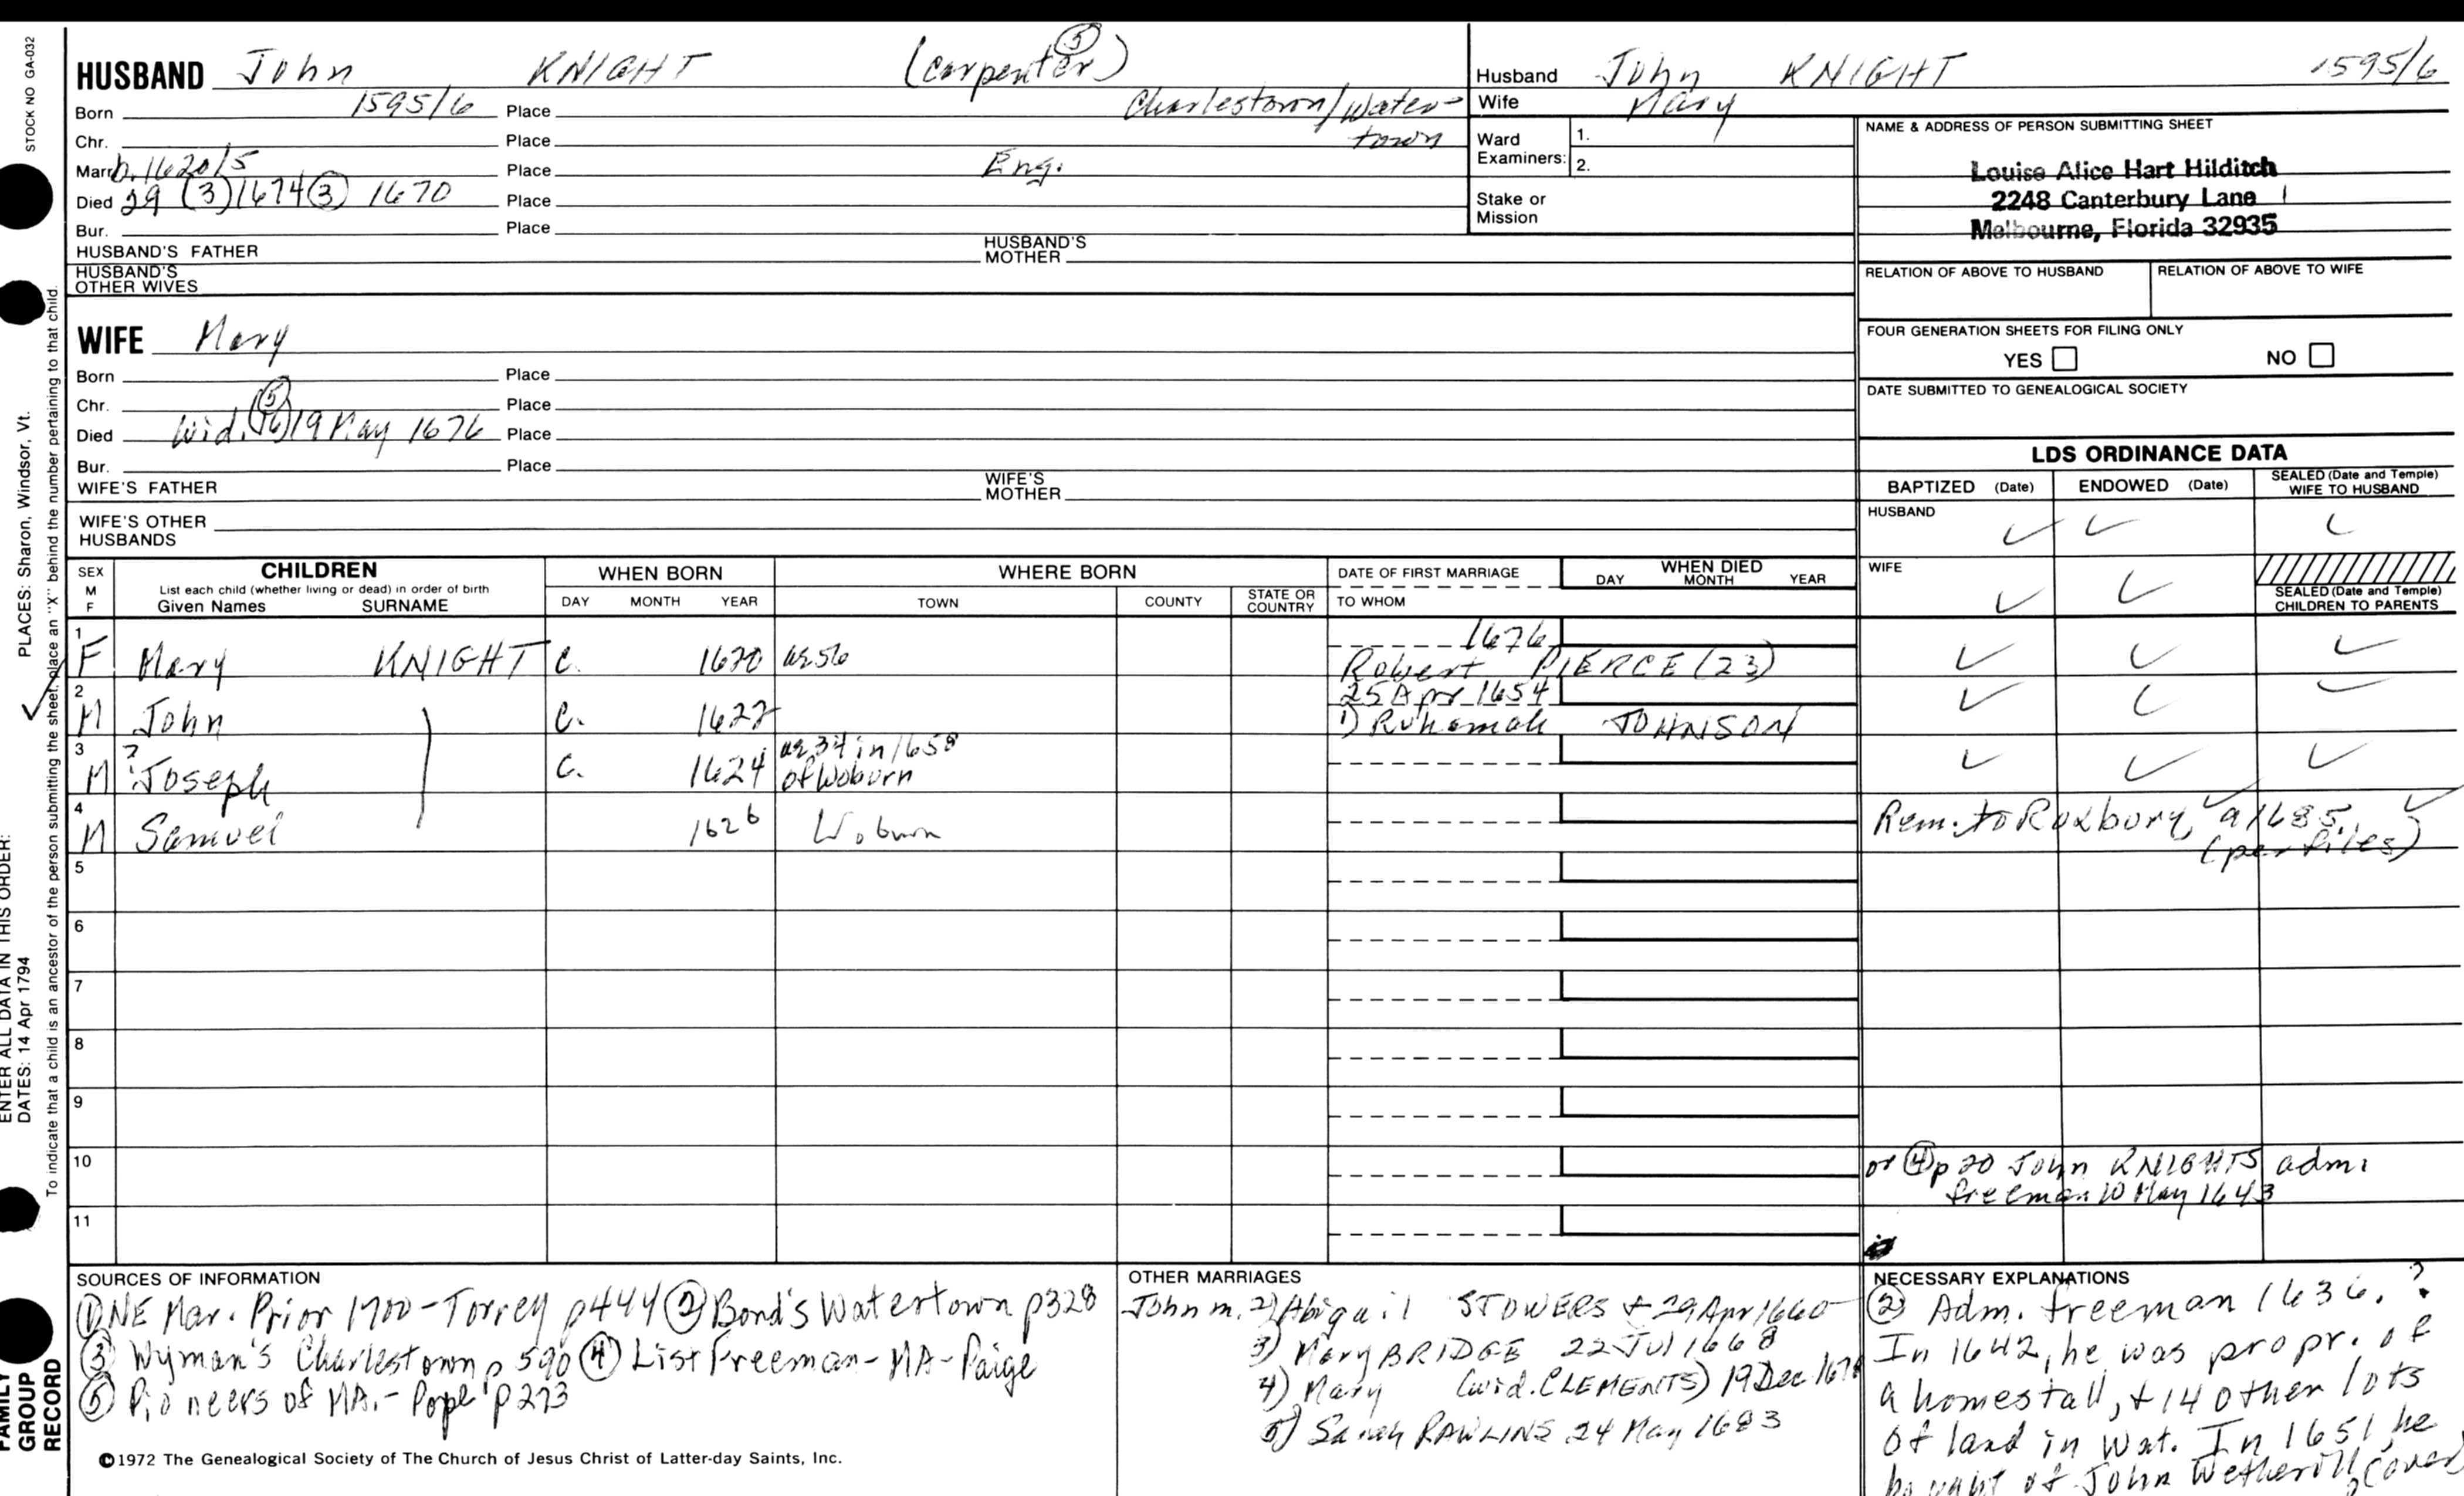 STOCK NO GA-032
HUSBAND John KNIGHT (carpenter) (5)
Born 1595/6 Place Charlestown/Water-
Chr. Place town
Marr. b. 1620/5 Place Eng.
Died 29 (3) 1674 (3) 1670 Place
Bur. Place
HUSBAND'S FATHER HUSBAND'S MOTHER
HUSBAND'S OTHER WIVES
WIFE Mary
Born Place
Chr. Place
Died Wid. (5) 19 May 1676 Place
Bur. Place
WIFE'S FATHER WIFE'S MOTHER
WIFE'S OTHER HUSBANDS
Husband John KNIGHT 1595/6
Wife Mary
Ward Examiners: 1.
2.
Stake or Mission
NAME & ADDRESS OF PERSON SUBMITTING SHEET
Louise Alice Hart Hilditch
2248 Canterbury Lane
Melbourne, Florida 32935
RELATION OF ABOVE TO HUSBAND RELATION OF ABOVE TO WIFE
FOUR GENERATION SHEETS FOR FILING ONLY
YES NO
DATE SUBMITTED TO GENEALOGICAL SOCIETY
LDS ORDINANCE DATA
BAPTIZED (Date) ENDOWED (Date) SEALED (Date and Temple) WIFE TO HUSBAND
HUSBAND
WIFE
SEALED (Date and Temple) CHILDREN TO PARENTS
SEX M F CHILDREN
List each child (whether living or dead) in order of birth
Given Names SURNAME
WHEN BORN DAY MONTH YEAR
WHERE BORN TOWN COUNTY STATE OR COUNTRY
DATE OF FIRST MARRIAGE TO WHOM
WHEN DIED DAY MONTH YEAR
1 F Mary KNIGHT C. 1620 ae 56 1676
Robert PIERCE (23)
2 M John C. 1622 25 Apr 1654
1) Ruhamah JOHNSON
3 M ? Joseph C. 1624 ae 34 in 1658
of Woburn
4 M Samuel 1626 Woburn
Rem. to Roxbury, a 1685.
(per files)
5
6
7
8
9
10
or (4) p 20 John KNIGHTS adm.
freeman 10 May 1643
11
SOURCES OF INFORMATION
(1) NE Mar. Prior 1700-Torrey p444 (2) Bond's Watertown p328
(3) Wyman's Charlestown p 590 (4) List Freeman-MA-Paige
(5) Pioneers of MA.-Pope p273
©1972 The Genealogical Society of The Church of Jesus Christ of Latter-day Saints, Inc.
OTHER MARRIAGES
John m. 2) Abigail STOWERS + 29 Apr 1660
3) Mary BRIDGE 22 Jul 1668
4) Mary (wid. CLEMENTS) 19 Dec
5) Sarah RAWLINS 24 May 1683
NECESSARY EXPLANATIONS
(2) Adm. freeman 1636. ?
In 1642, he was propr. of
a homestall, + 14 other lots
of land in Wat. In 1651 he
bought of John Wetherill (over)
PLACES: Sharon, Windsor, Vt.
ENTER ALL DATA IN THIS ORDER:
DATES: 14 Apr 1794
To indicate that a child is an ancestor of the person submitting the sheet, place an "X" behind the number pertaining to that child.
FAMILY GROUP RECORD